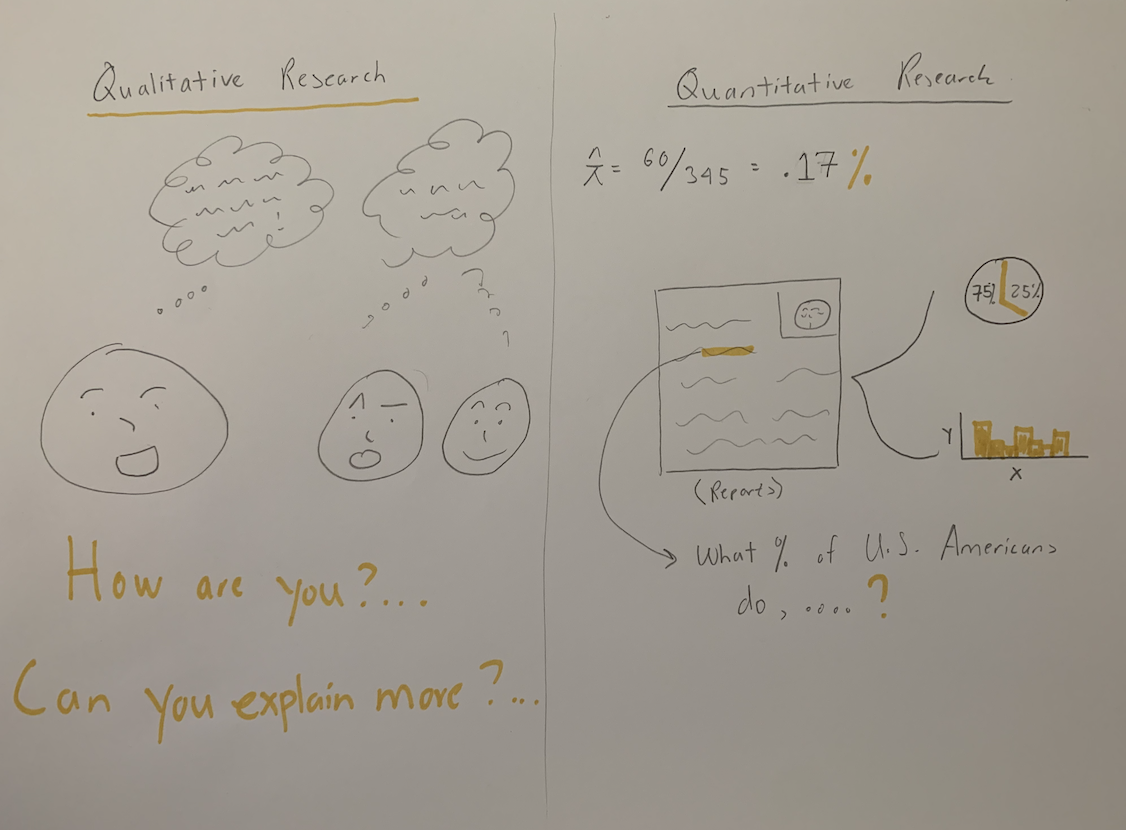 Qualitative Research
How are you?...
Can you explain more?...
Quantitative Research
60/345 = .17%
75% 25%
Y
X
(Reports)
What % of U.S. Americans
do, .... ?